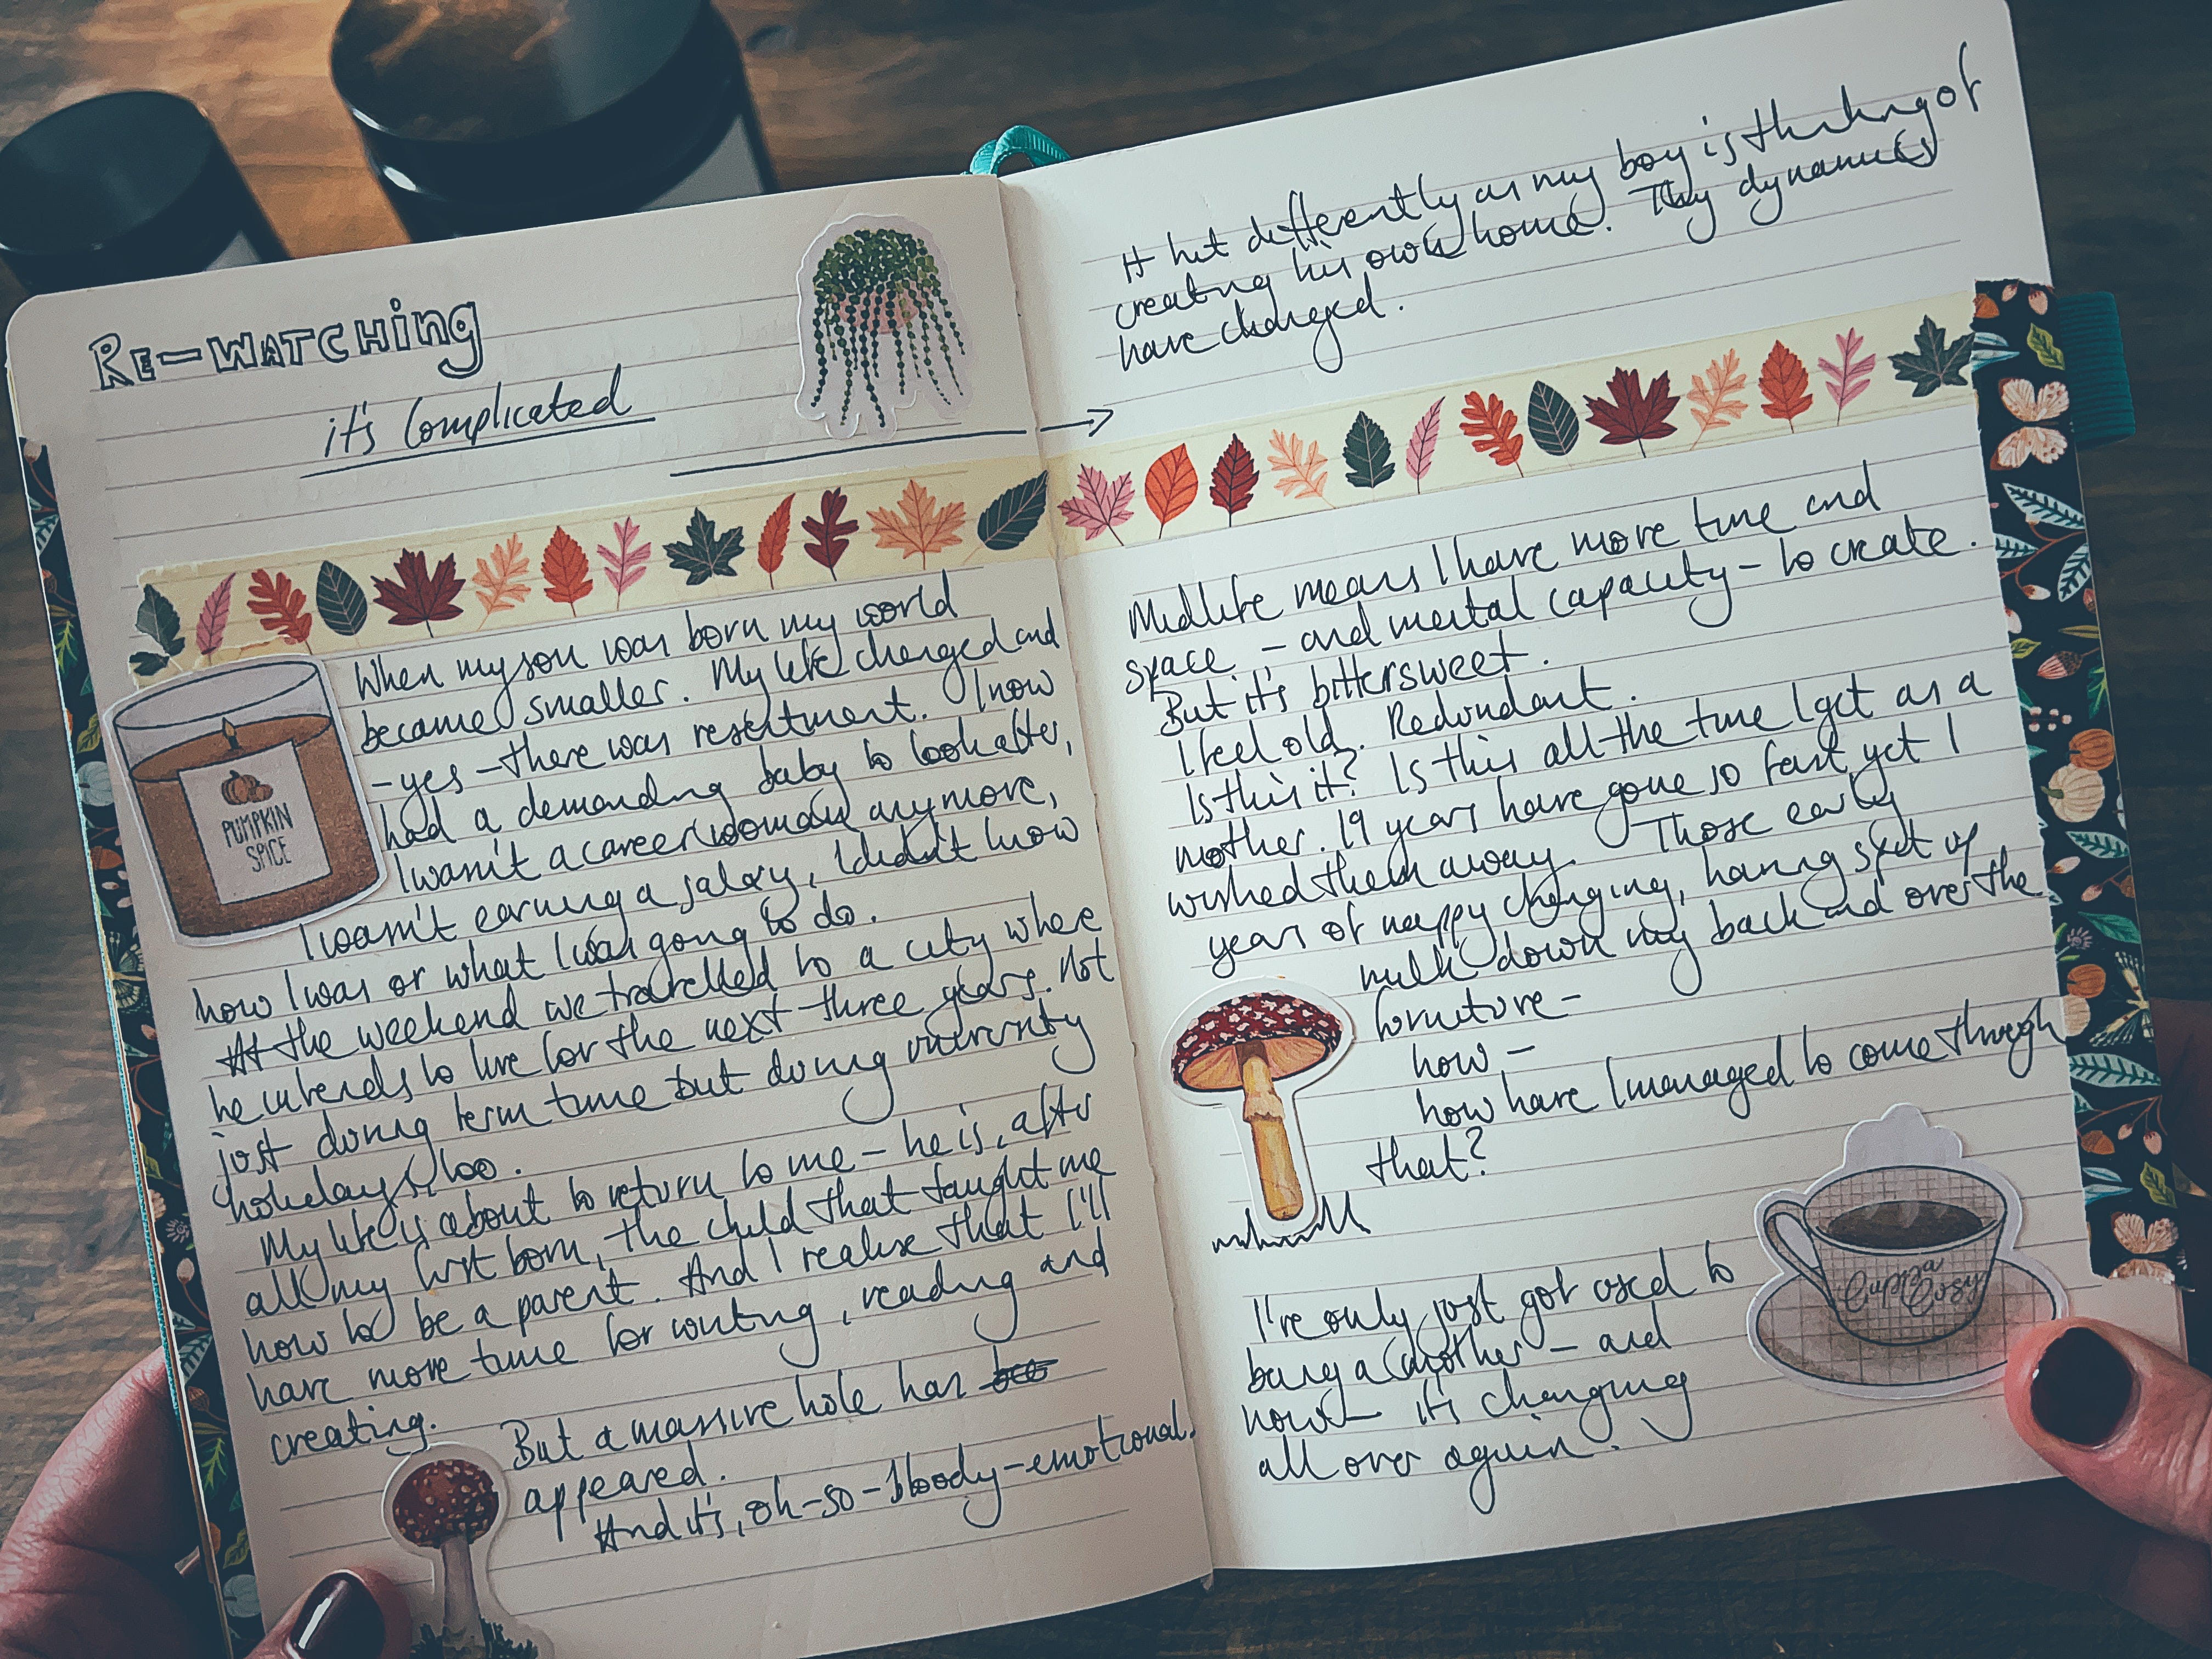 RE-WATCHING
it's Complicated
It hit differently as my boy is thinking of
creating his own home. My dynamics
have changed.
When my son was born my world
became smaller. My life changed and
-yes-there was resentment. I now
had a demanding baby to look after,
I wasn't a career woman anymore,
I wasn't earning a salary, I didn't know
how I was or what I was going to do.
At the weekend we travelled to a city where
he intends to live for the next three years. Not
just during term time but during university
holidays, too.
My life is about to return to me - he is, after
all my first born, the child that taught me
how to be a parent. And I realise that I'll
have more time for writing, reading and
creating.
But a massive hole has
appeared.
And it's, oh-so-bloody-emotional.
Midlife means I have more time and
space - and mental capacity - to create.
But it's bittersweet.
I feel old. Redundant.
Is this it? Is this all the time I get as a
mother. 19 years have gone so fast, yet I
wished them away. Those early
years of nappy changing, having spit up
milk down my back and over the
furniture -
how -
how have I managed to come through
that?
I've only just got used to
being a mother - and
now - it's changing
all over again.
PUMPKIN
SPICE
Cuppa
Cosy